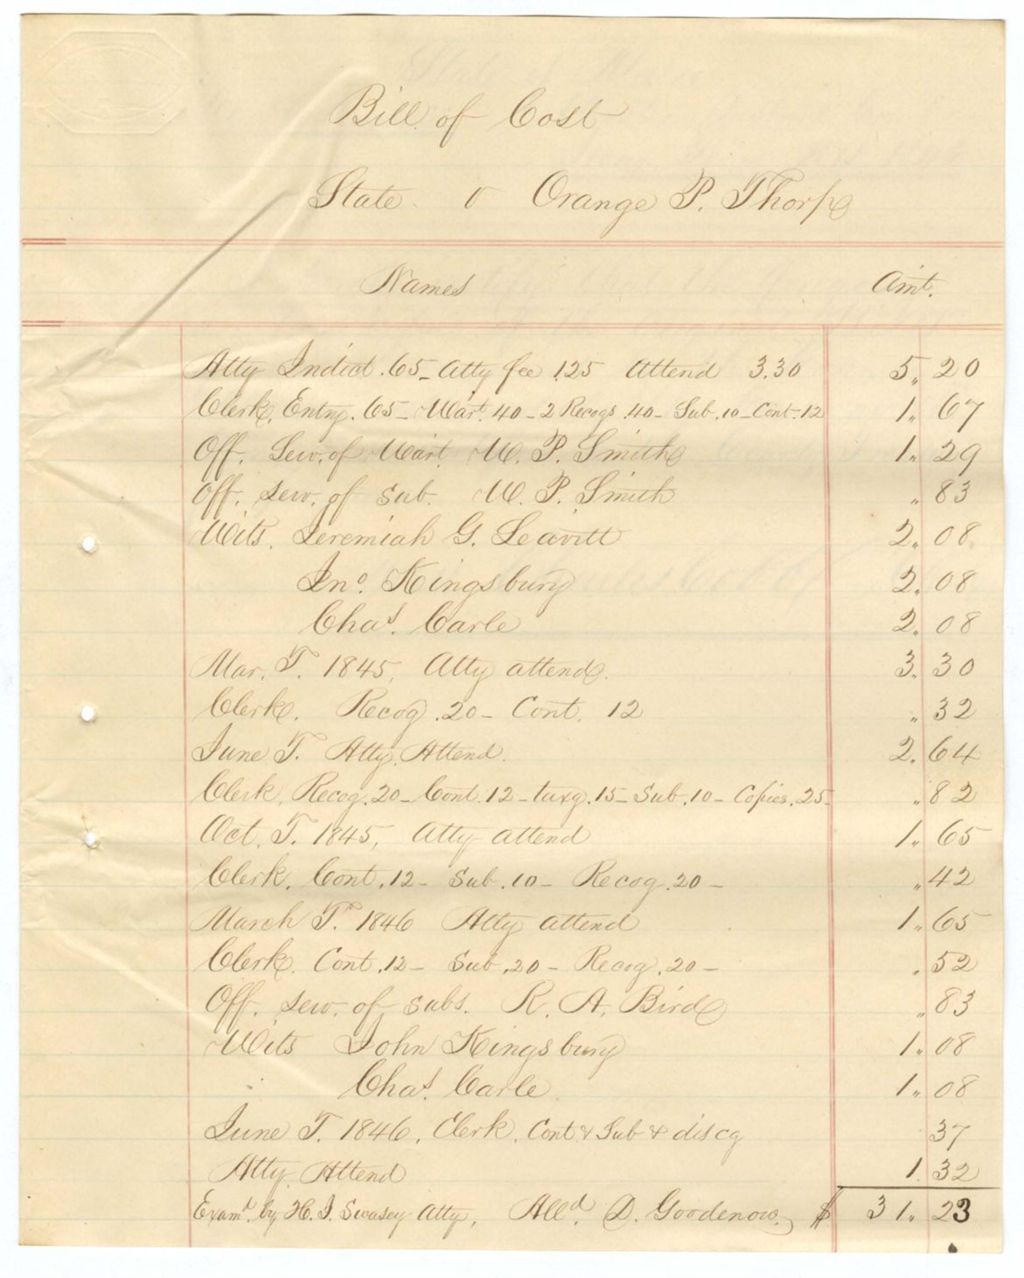 Bill of Cost
State v Orange P. Thorp
Names Amt.
Atty Indict .65 – Atty fee 1.25 Attend 3.30 5. 20
Clerk, Entry .65 – Wart. 40 – 2 Recogs .40 – Sub .10 – Cont. 12 1. 67
Off. Serv. of Wart. W. P. Smith 1. 29
Off. Serv. of Sub. W. P. Smith " 83
Wits. Jeremiah G. Leavitt 2. 08
Jno. Kingsbury 2. 08
Chas. Carle 2. 08
Mar. T. 1845, Atty attend. 3. 30
Clerk. Recog .20 – Cont. 12 " 32
June T. Atty. Attend. 2. 64
Clerk, Recog. 20 – Cont. 12 – taxg. 15 – Sub. 10 – Copies. 25 " 82
Oct. T. 1845, Atty attend 1. 65
Clerk. Cont. 12 – Sub. 10 – Recog. 20 – " 42
March T. 1846 Atty attend 1. 65
Clerk. Cont. 12 – Sub. 20 – Recog. 20 – . 52
Off. serv. of subs. R. A. Bird " 83
Wits John Kingsbury 1. 08
Chas. Carle. 1. 08
June T. 1846, Clerk, Cont & Sub & discg 37
Atty. Attend 1. 32
Examd. by H. J. Swasey Atty, Alld. D. Goodenow. $ 31. 23